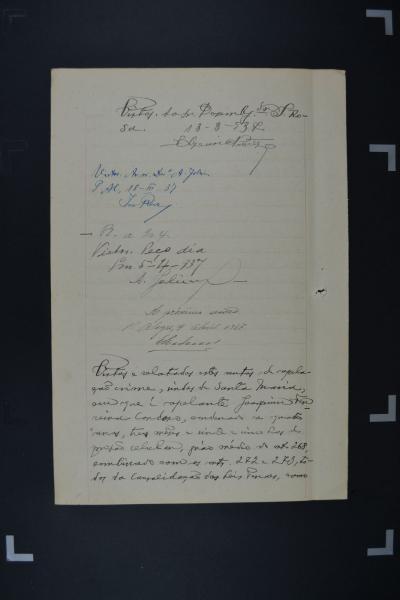 Vistos. Ao Sr. Desemb.
sa. 13-3-937.
Vistos. Ao Exmo. Des. A. Jobim
P. Al., 18-III-37
R. a 30/4.
Vistos. Peço dia
Em 5-4-937
A. Jobim
A próxima sessão
P. Alegre, 9 Abril 1937
Vistos e relatados estes autos de apela-
ção crime, vindos de Santa Maria,
em que é apelante Joaquim Fer-
reira Cardoso, condenado a quatro
anos, tres mêses e vinte e cinco dias de
prisão celular, gráo médio do art. 268,
combinado com os arts. 272 e 273, to-
dos da Consolidação das Leis Penais, como